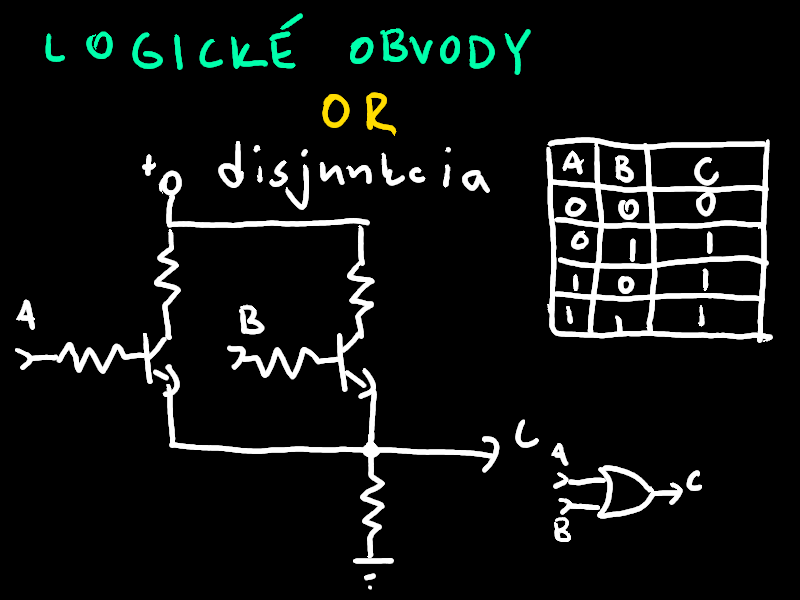 LOGICKÉ OBVODY
OR
disjunkcia
+
A B C
0 0 0
0 1 1
1 0 1
1 1 1
A
B
C
A
C
B